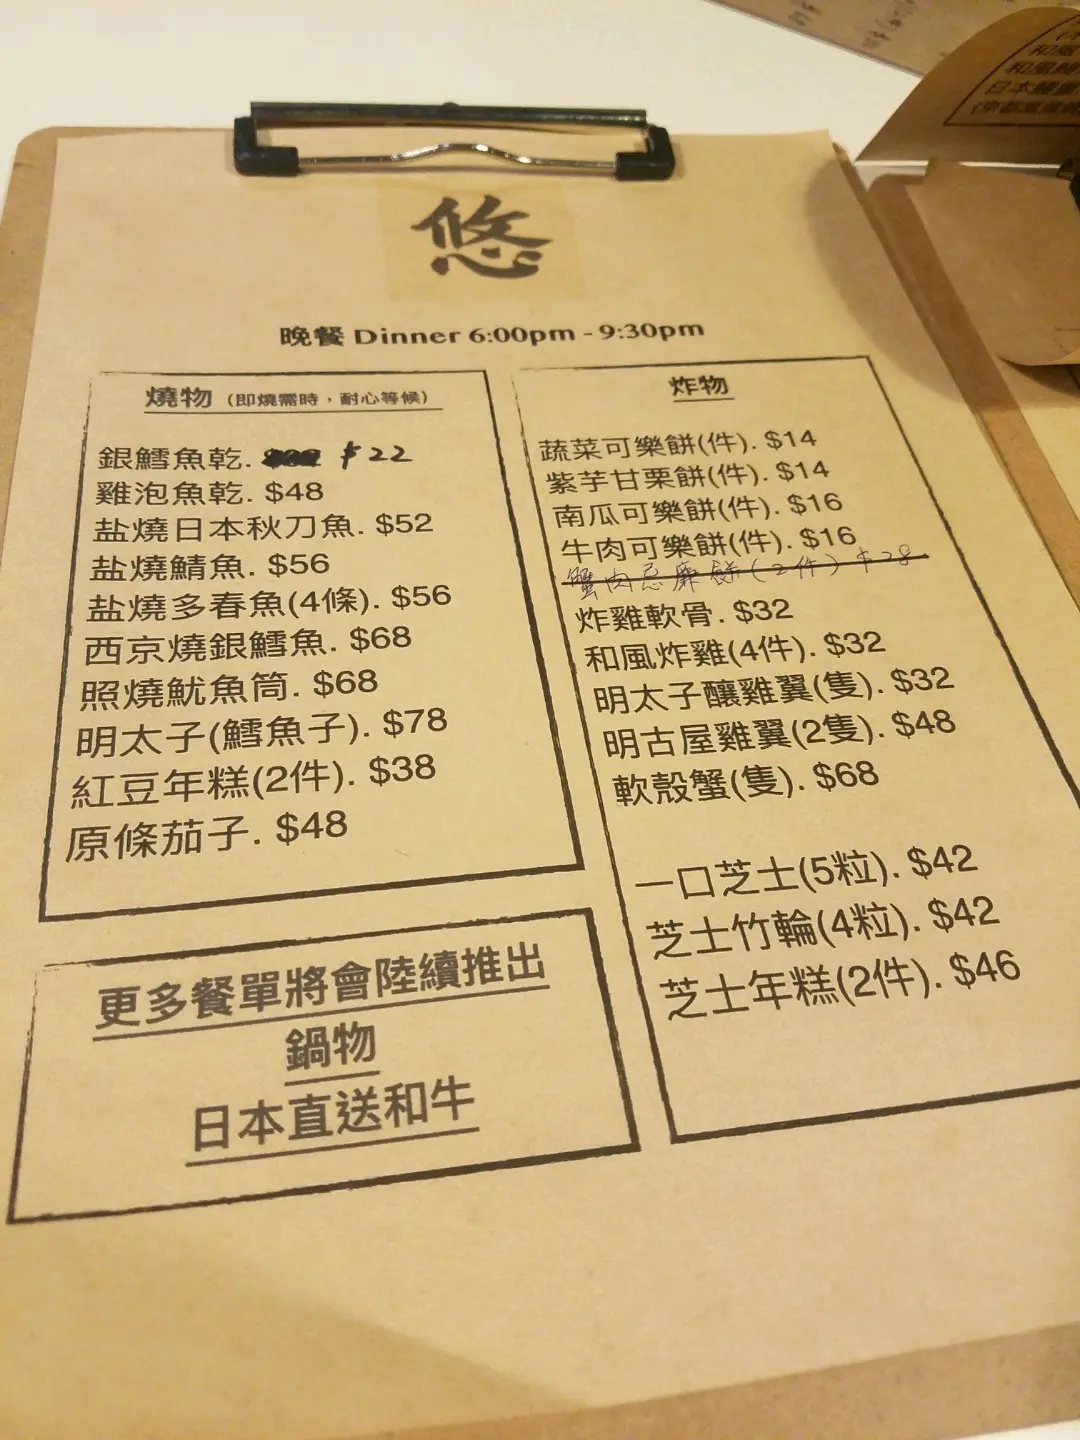 悠
晚餐 Dinner 6:00pm - 9:30pm
燒物 (即燒需時，耐心等候)
銀鱈魚乾. $22
雞泡魚乾. $48
盐燒日本秋刀魚. $52
盐燒鯖魚. $56
盐燒多春魚(4條). $56
西京燒銀鱈魚. $68
照燒魷魚筒. $68
明太子(鱈魚子). $78
紅豆年糕(2件). $38
原條茄子. $48
更多餐單將會陸續推出
鍋物
日本直送和牛
炸物
蔬菜可樂餅(件). $14
紫芋甘栗餅(件). $14
南瓜可樂餅(件). $16
牛肉可樂餅(件). $16
蟹肉忌廉餅(2件) $28
炸雞軟骨. $32
和風炸雞(4件). $32
明太子釀雞翼(隻). $32
明古屋雞翼(2隻). $48
軟殼蟹(隻). $68
一口芝士(5粒). $42
芝士竹輪(4粒). $42
芝士年糕(2件). $46
和風
日本鰻